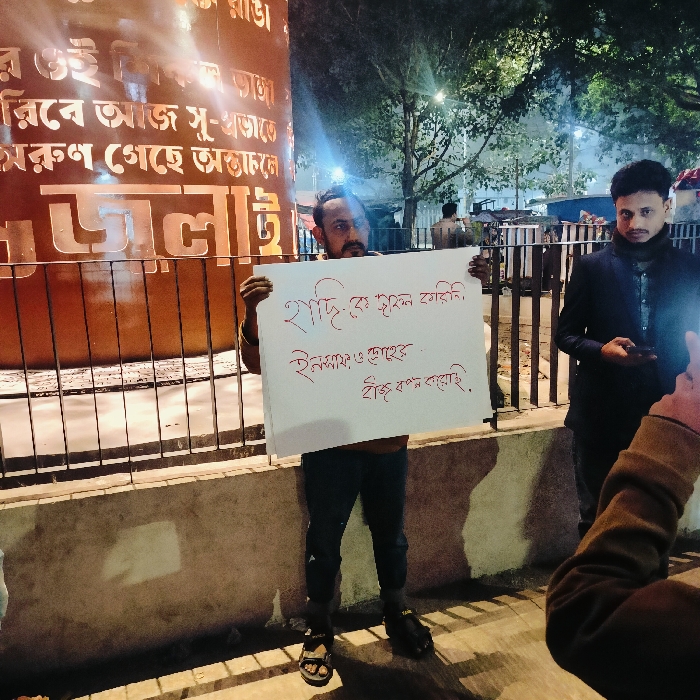 রাঙা
ওই শিকল ভাঙা
রিবে আজ সু-প্রভাতে
অরুণ গেছে অস্তাচলে
জুলাই
হাদি-কে দাফন করিনি
ইনসাফ ও দ্রোহের
বীজ বপন করেছি.